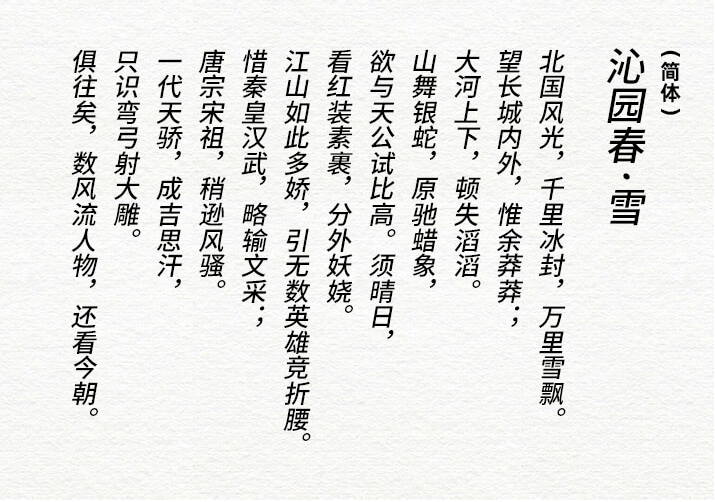 （简体）
沁园春·雪
北国风光，千里冰封，万里雪飘。
望长城内外，惟余莽莽；
大河上下，顿失滔滔。
山舞银蛇，原驰蜡象，
欲与天公试比高。须晴日，
看红装素裹，分外妖娆。
江山如此多娇，引无数英雄竞折腰。
惜秦皇汉武，略输文采；
唐宗宋祖，稍逊风骚。
一代天骄，成吉思汗，
只识弯弓射大雕。
俱往矣，数风流人物，还看今朝。